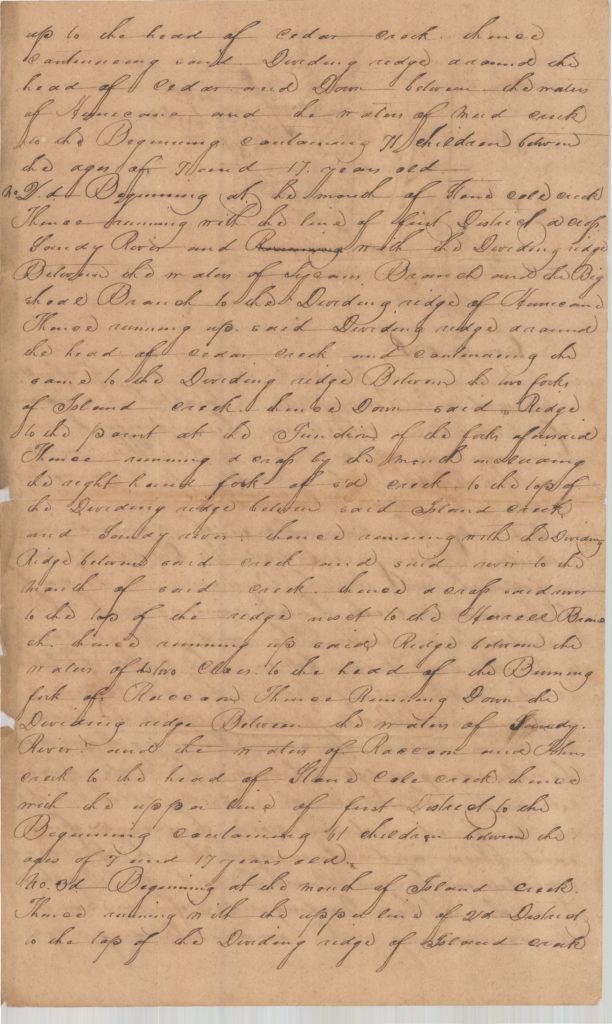 up to the head of cedar creek. thence
continueing said Dividing ridge around the
head of Cedar and Down between the waters
of Hurricane and the waters of Mud creek
to the Beginning containing 71 children between
the ages of 7 and 17 years old
No. 2.d. Beginning at the mouth of Stone cole creek
Thence running with the line of first District a crass
Sandy River and Running with the Dividing ridge
Between the waters of Branch and the Big
shoal Branch to the Dividing ridge of Hurricane
Thence running up said Dividing ridge around
the head of cedar creek and continueing the
same to the Dividing ridge Between the two forks
of Island creek. thence Down said Ridge
to the point at the Junction of the forks aforesaid
Thence running a crass by the mouth including
the right hand fork of s'd creek to the top of
the Dividing ridge between said Island creek
and Sandy river. thence running with the Dividing
Ridge between said creek and said river to the
mouth of said creek. thence a crass said river
to the top of the ridge next to the Branc
ch. thence running up said Ridge between the
waters of the two to the head of the Burning
fork of Raccoon Thence Running Down the
Dividing ridge Between the waters of Sandy.
River. and the waters of Raccoon and Johns
creek to the head of Stone Cole creek. thence
with the upper line of first District to the
Beginning containing 61 children between the
ages of 7 and 17 years old.
No. 3d Beginning at the mouth of Island creek.
Thence running with the upper line of 2d District
to the top of the Dividing ridge of Island creek